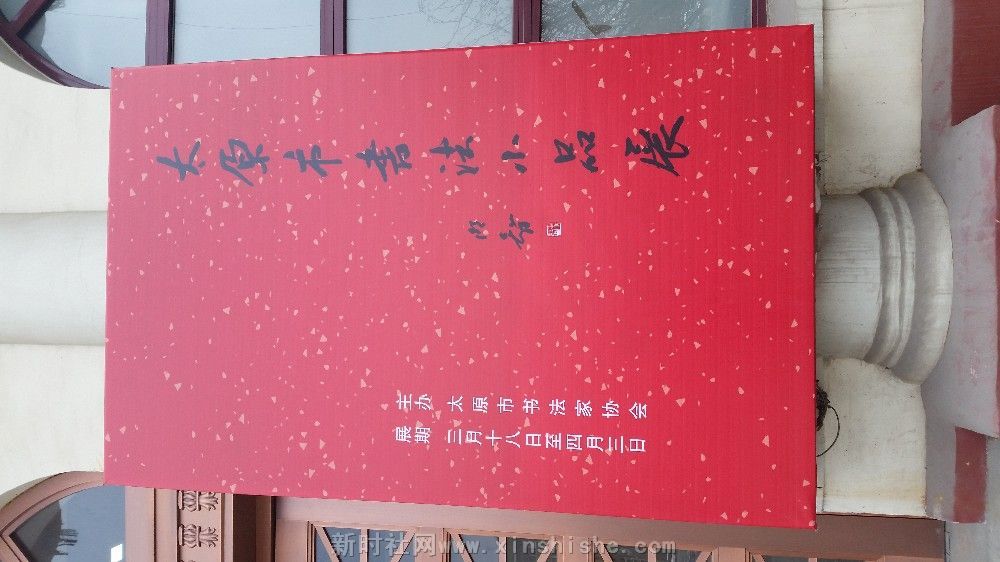 太原市書法小品展
主办 太原市书法家协会
展期 三月十八日至四月三日
新时社网www.xinshishe.com